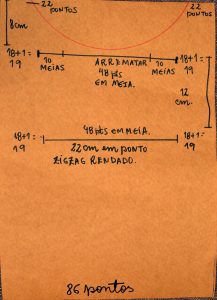 22 PONTOS
22 PONTOS
8cm
18+1= 19
10 MEIAS
ARREMATAR 48 pts EM MEIA.
10 MEIAS
18+1= 19
12 cm.
18+1= 19
48 pts EM MEIA.
18+1= 19
22 cm em PONTO ZIGZAG RENDADO.
86 pontos